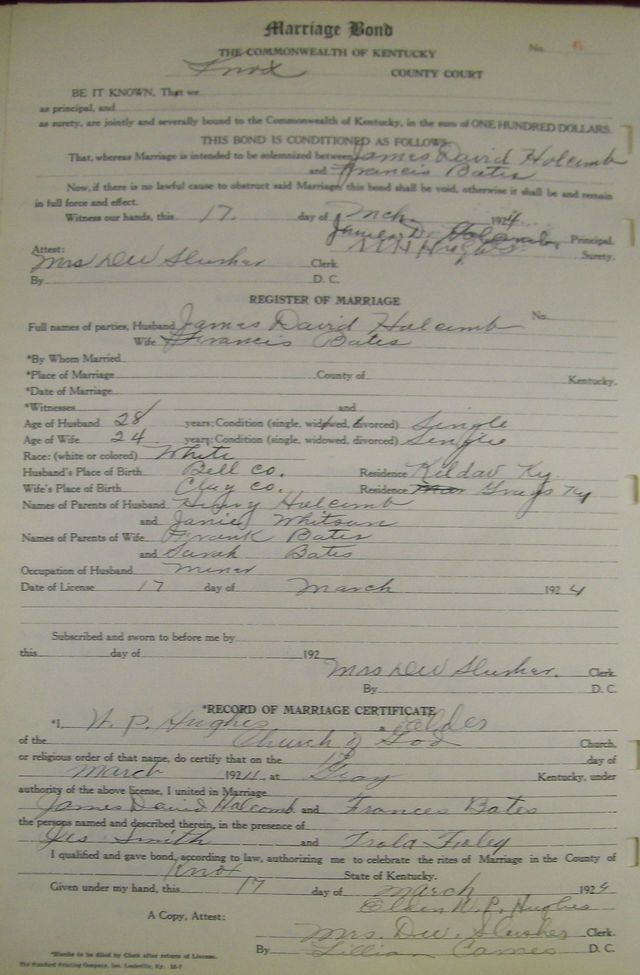 Marriage Bond
THE COMMONWEALTH OF KENTUCKY No. 6
Knox COUNTY COURT
BE IT KNOWN, That we
as principal, and
as surety, are jointly and severally bound to the Commonwealth of Kentucky, in the sum of ONE HUNDRED DOLLARS.
THIS BOND IS CONDITIONED AS FOLLOWS
That, whereas Marriage is intended to be solemnized between James David Holcomb
and Francis Bates
Now, if there is no lawful cause to obstruct said Marriage, this bond shall be void, otherwise it shall be and remain
in full force and effect.
Witness our hands, this 17 day of Mch 1924
James D. Holcomb Principal.
Attest: Surety.
Mrs DW Slusher Clerk
By D. C.
REGISTER OF MARRIAGE
No.
Full names of parties, Husband James David Holcomb
Wife Francis Bates
*By Whom Married
*Place of Marriage County of Kentucky.
*Date of Marriage
*Witnesses and
Age of Husband 28 years; Condition (single, widowed, divorced) Single
Age of Wife 24 years; Condition (single, widowed, divorced) Single
Race: (white or colored) White
Husband's Place of Birth Bell Co. Residence Kildav Ky
Wife's Place of Birth Clay Co. Residence Ky
Names of Parents of Husband Henry Holcomb
and Janie Whitson
Names of Parents of Wife Frank Bates
and Sarah Bates
Occupation of Husband Miner
Date of License 17 day of March 1924
Subscribed and sworn to before me by
this day of 192
Mrs DW Slusher Clerk
By D. C.
*RECORD OF MARRIAGE CERTIFICATE
*I, W. P. Hughes a Elder
of the Church of God Church,
or religious order of that name, do certify that on the 17 day of
March 1924, at Gray Kentucky, under
authority of the above license, I united in Marriage
James David Holcomb and Frances Bates
the persons named and described therein, in the presence of
Smith and
I qualified and gave bond, according to law, authorizing me to celebrate the rites of Marriage in the County of
Knox State of Kentucky.
Given under my hand, this 17 day of March 1924
Elder W. P. Hughes
A Copy, Attest: Mrs. DW. Slusher Clerk.
By Lillian D. C.
*Blanks to be filled by Clerk after return of License.
The Standard Printing Company, Inc. Louisville, Ky.